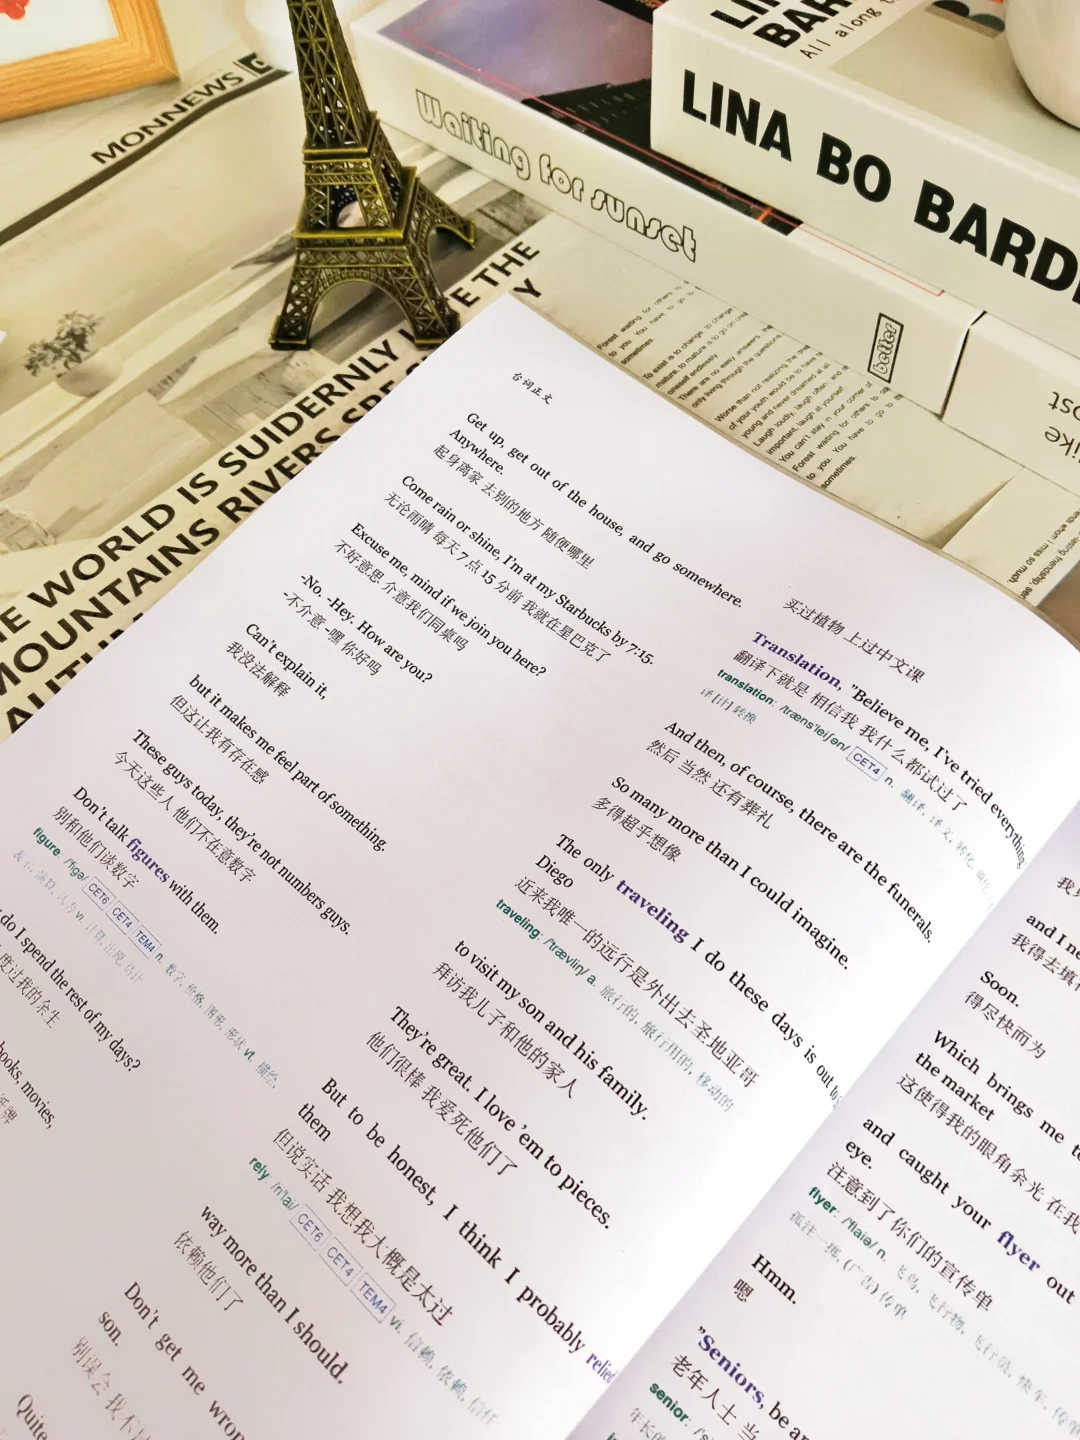 MONNEWS
Waiting for sunset
better
LINA BO BARD
All along
THE
WORLD IS SUIDERNLY
MOUNTAINS RIVERS
Forest waiting for others to
to you. You have to go
sometimes.
To exist is to change, to change
mature, to mature is to go on
oneself endlessly.
There are no easy answers,
only living through the questions.
Worse than not realizing the
of your youth would be to have
young and never dreamed at all
Laugh loudly, laugh often, and
important, laugh at yourself.
You can't stay in your corner of
Forest waiting for others to
to you. You have to go to
sometimes.
台词正文
Get up, get out of the house, and go somewhere.
Anywhere.
起身离家 去别的地方 随便哪里
Come rain or shine, I'm at my Starbucks by 7:15.
无论雨晴 每天 7 点 15 分前 我就在星巴克了
Excuse me, mind if we join you here?
不好意思 介意我们同桌吗
-No. -Hey. How are you?
-不介意 -嘿 你好吗
Can't explain it,
我没法解释
but it makes me feel part of something.
但这让我有存在感
These guys today, they're not numbers guys.
今天这些人 他们不在意数字
Don't talk figures with them.
别和他们谈数字
figure: /ˈfɪɡə/ CET6 CET4 TEM4 n. 数字, 价格, 图形, 形状 vt. 描绘,
vi. 计算, 出现, 估计
do I spend the rest of my days?
度过我的余生
books, movies,
买过植物 上过中文课
Translation, "Believe me, I've tried everything
翻译下就是 相信我 我什么都试过了
translation: /trænsˈleiʃən/ CET4 n. 翻译, 译文, 转化,
译 [计] 转换
And then, of course, there are the funerals.
然后 当然 还有葬礼
So many more than I could imagine.
多得超乎想像
The only traveling I do these days is out to
Diego
近来我唯一的远行是外出去圣地亚哥
traveling: /ˈtrævlin/ a. 旅行的, 旅行用的, 移动的
to visit my son and his family.
拜访我儿子和他的家人
They're great. I love 'em to pieces.
他们很棒 我爱死他们了
But to be honest, I think I probably relied
them
但说实话 我想我大概是太过
rely: /riˈlai/ CET6 CET4 TEM4 vi. 信赖, 依赖, 信任
way more than I should.
依赖他们了
Don't get me wrong
son.
别误会 我不
Quite
and I ne
我得去填
Soon.
得尽快而为
Which brings me to
the market
这使得我的眼角余光 在我
and caught your flyer out
eye.
注意到了你们的宣传单
flyer: /ˈflaiə/ n. 飞鸟, 飞行物, 飞行员, 快车, 传单
孤注一掷, (广告) 传单
Hmm.
嗯
"Seniors, be a
老年人士 当
senior:
年长的